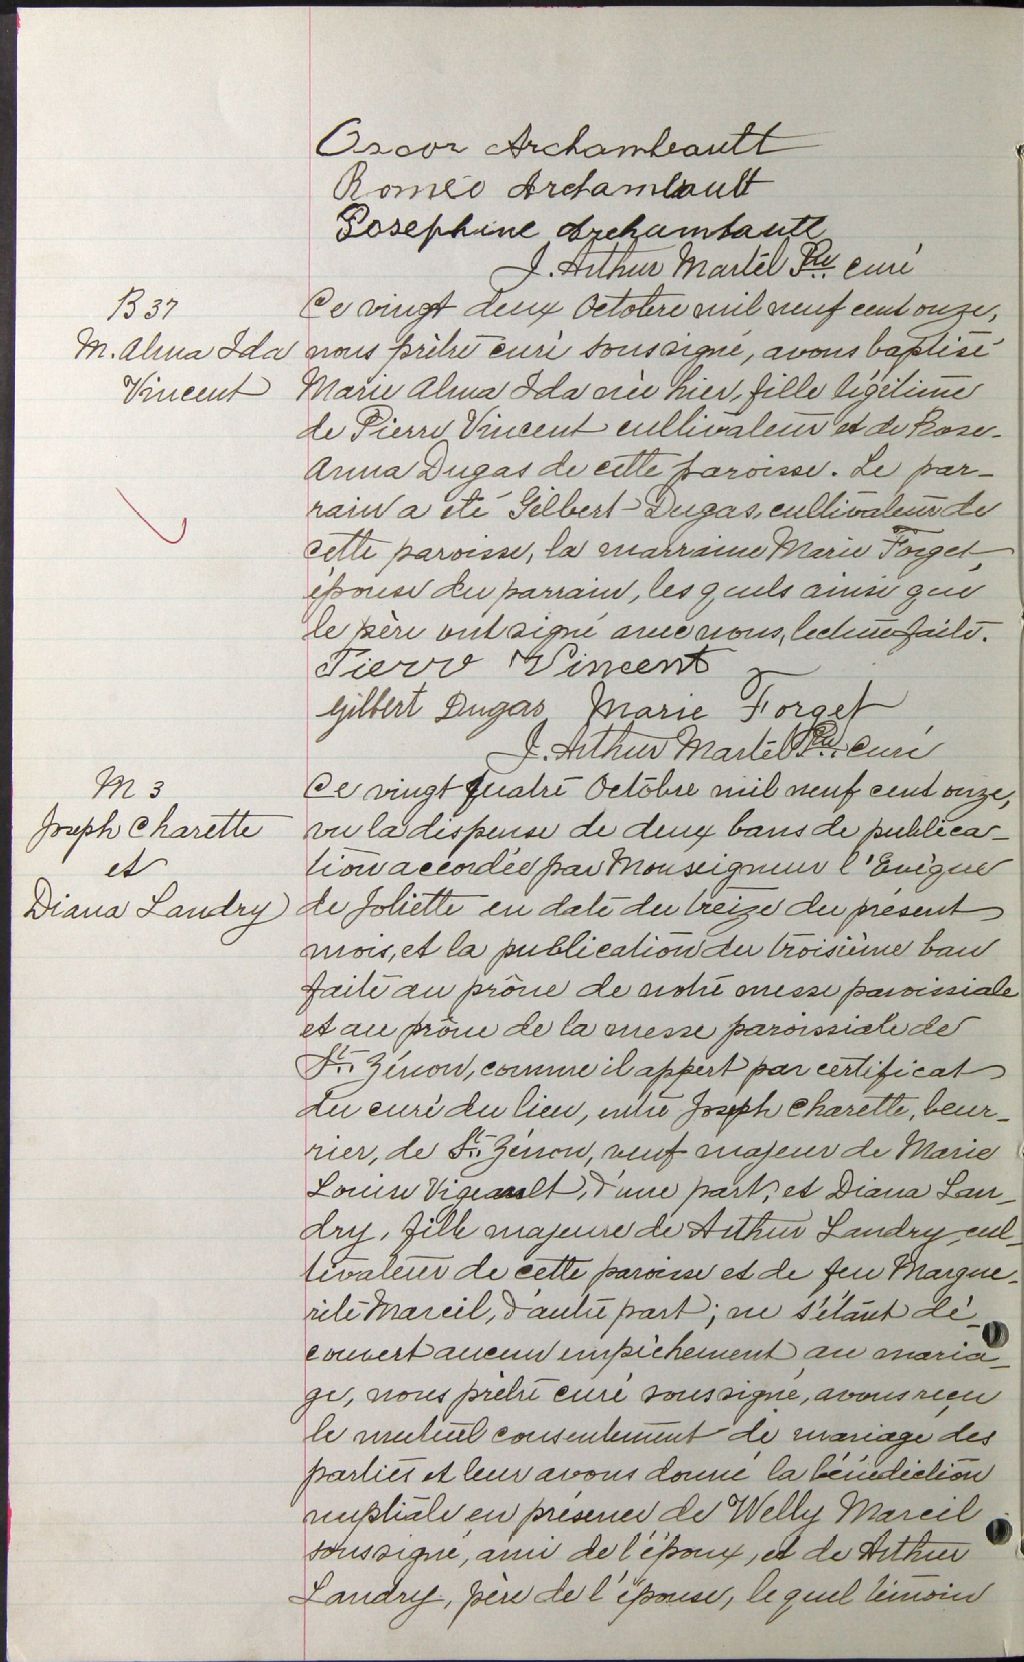 Oscar Archambeault
Roméo Archambault
Josephine Archambault
J. Arthur Martel Ptre curé
B 37
M. Alma Ida
Vincent
Ce vingt deux Octobre mil neuf cent onze,
nous prêtre curé soussigné, avons baptisé
Marie Alma Ida née hier, fille légitime
de Pierre Vincent cultivateur et de Rose-
Anna Dugas de cette paroisse. Le par-
rain a été Gilbert Dugas, cultivateur de
cette paroisse, la marraine Marie Forget
épouse du parrain, lesquels ainsi que
le père ont signé avec nous, lecture faite.
Pierre Vincent
Gilbert Dugas Marie Forget
J. Arthur Martel Ptre curé
M 3
Joseph Charette
et
Diana Landry
Ce vingt quatre Octobre mil neuf cent onze,
vu la dispense de deux bans de publica-
tion accordée par Monseigneur l'Evêque
de Joliette en date du treize du présent
mois, et la publication du troisième ban
faite au prône de notre messe paroissiale
et au prône de la messe paroissiale de
St. Zénon, comme il appert par certificat
du curé du lieu, entre Joseph Charette, beur-
rier, de St. Zénon, veuf majeur de Marie
Louise Vigeault, d'une part, et Diana Lan-
dry, fille majeure de Arthur Landry, cul-
tivateur de cette paroisse et de feu Margue-
rite Marcil, d'autre part; ne s'étant dé-
couvert aucun empêchement au maria-
ge, nous prêtre curé soussigné, avons reçu
le mutuel consentement de mariage des
parties et leur avons donné la bénédiction
nuptiale en présence de Welly Marcil
soussigné, ami de l'époux, et de Arthur
Landry, père de l'épouse, lequel témoin